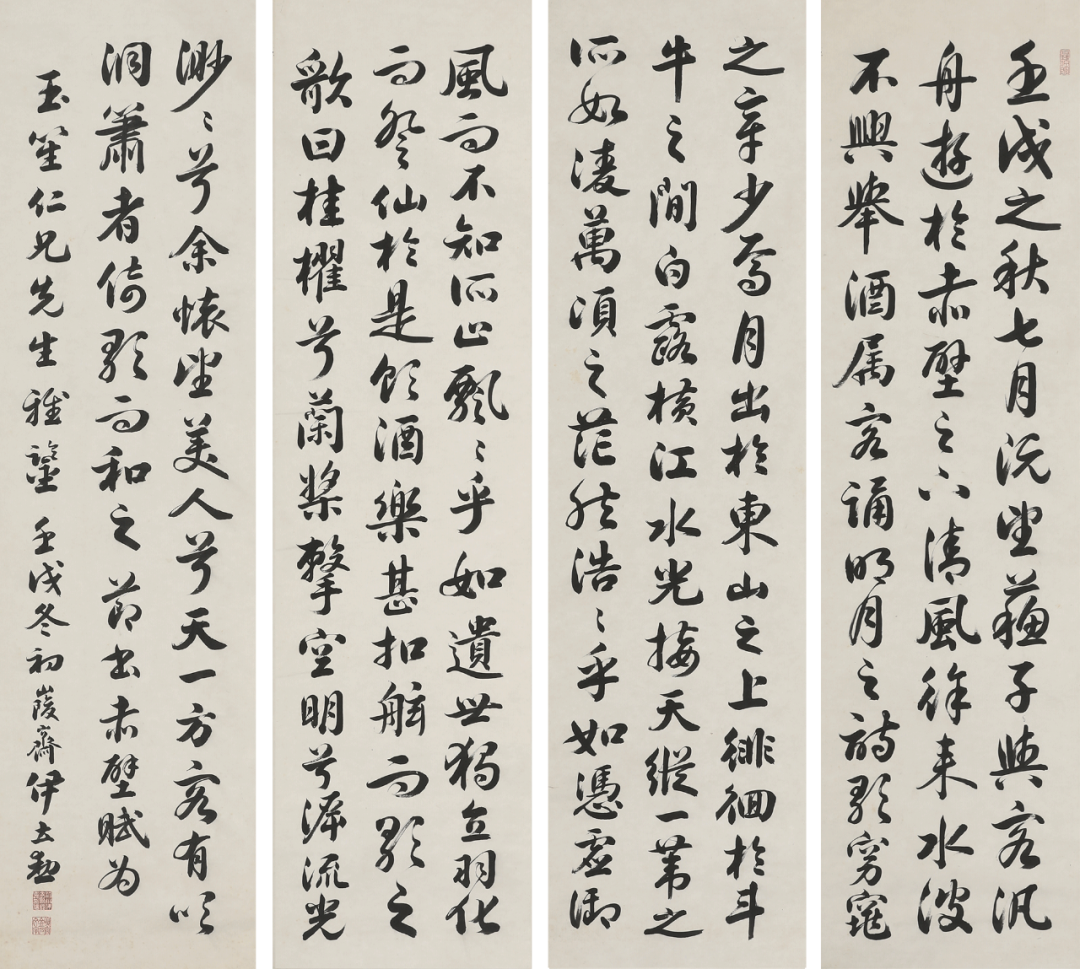 壬戌之秋七月既望蘓子與客汎
舟遊於赤壁之下清風徐來水波
不興舉酒属客誦明月之詩歌窈窕
之章少焉月出於東山之上徘徊於斗
牛之間白露橫江水光接天縱一葦之
所如凌萬頃之茫然浩〻乎如憑虛御
風而不知所止飄〻乎如遺世獨立羽化
而登仙於是飲酒樂甚扣舷而歌之
歌曰桂櫂兮蘭槳擊空明兮泝流光
渺〻兮余懷望美人兮天一方客有吹
洞簫者倚歌而和之 節書赤壁賦為
玉笙仁兄先生雅鑒 壬戌冬初 峻齋伊立勳